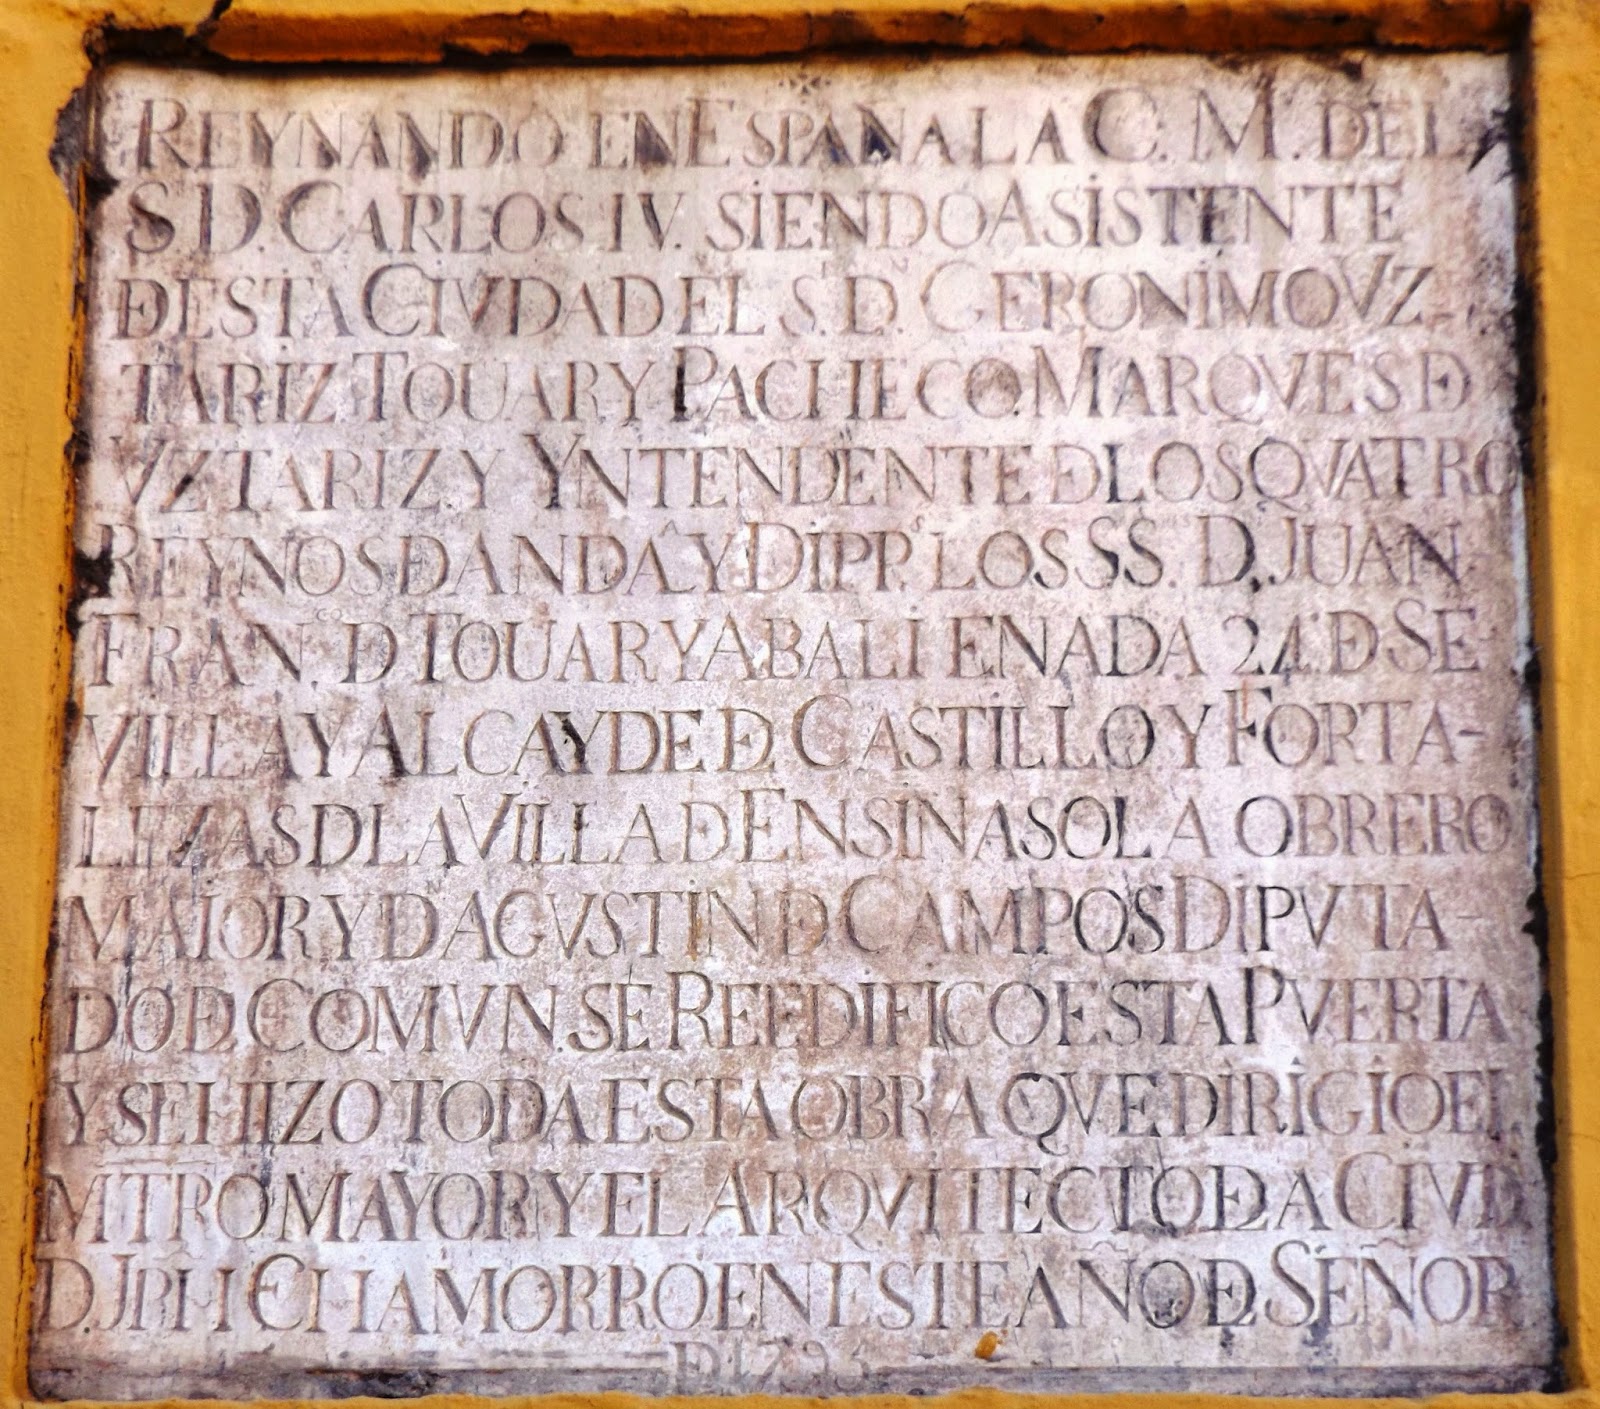 REYNANDO EN ESPAÑA LA C. M. DEL
S. D. CARLOS IV. SIENDO ASISTENTE
DE ESTA CIVDAD EL S.ʳ D.ᴺ GERONIMO VZ-
TARIZ TOUAR Y PACHECO. MARQVES D
VZTARIZ Y YNTENDENTE D LOS QVATRO
REYNOS D ANDA.ᴬ Y DIPP.ˢ LOS SS. D. JUAN
FRAN.ᶜᴼ D TOUAR Y ABALIENADA 24. D SE
VILLA Y ALCAYDE DEL CASTILLO Y FORTA-
LEZAS D LA VILLA D ENSINASOLA OBRERO
MAIOR Y Dᴺ AGVSTIN D CAMPOS DIPVTA-
DO DEL COMVN. SE REEDIFICO ESTA PVERTA
Y SE HIZO TODA ESTA OBRA QVE DIRIGIO EL
MTRO MAYOR Y EL ARQVITECTO DE LA CIVD
D. JPH CHAMORRO EN ESTE AÑO DEL SEÑOR
D 1795